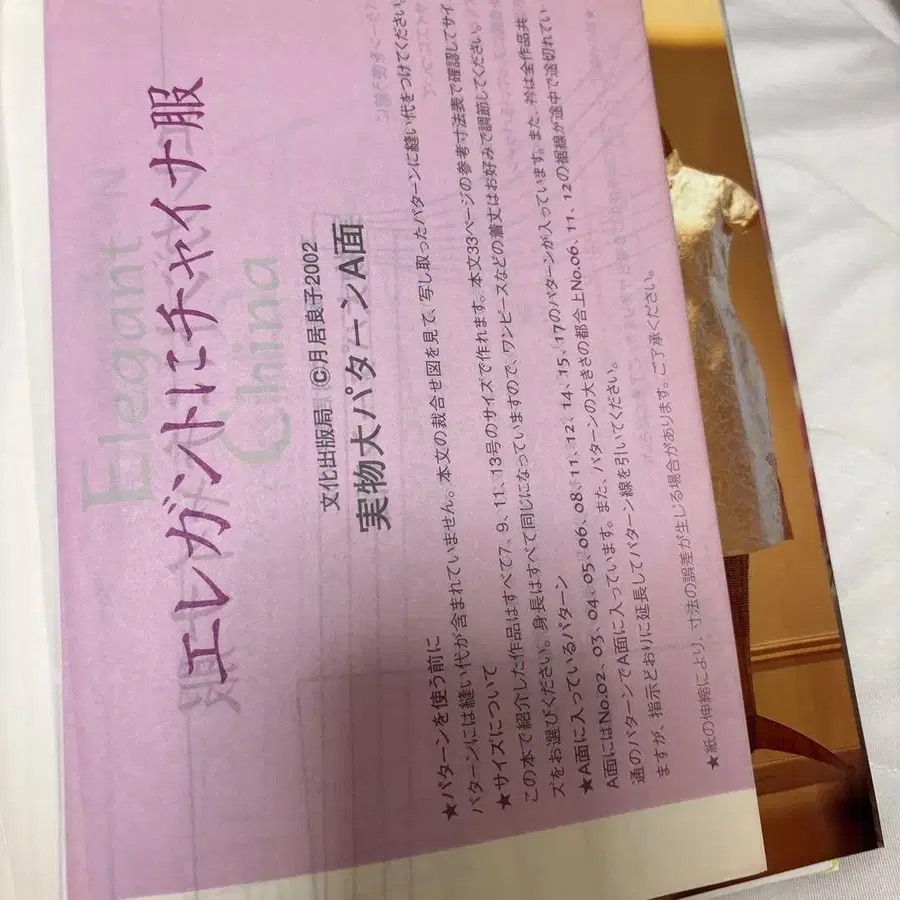 Elegant
China
エレガントにチャイナ服
文化出版局 ©月居良子2002
実物大パターンA面
★パターンを使う前に
パターンには縫い代が含まれていません。本文の裁合せ図を見て、写し取ったパターンに縫い代をつけてください。
★サイズについて
この本で紹介した作品はすべて7、9、11、13号のサイズで作れます。本文33ページの参考寸法表で確認してサイ
ズをお選びください。身長はすべて同じになっていますので、ワンピースなどの着丈はお好みで調節してください。
★A面に入っているパターン
A面にはNo.02、03、04、05、06、08、11、12、14、15、17のパターンが入っています。また、衿は全作品共
通のパターンでA面に入っています。また、パターンの大きさの都合上No.06、11、12の裾線が途中で途切れてい
ますが、指示どおりに延長してパターン線を引いてください。
★紙の伸縮により、寸法の誤差が生じる場合があります。ご了承ください。